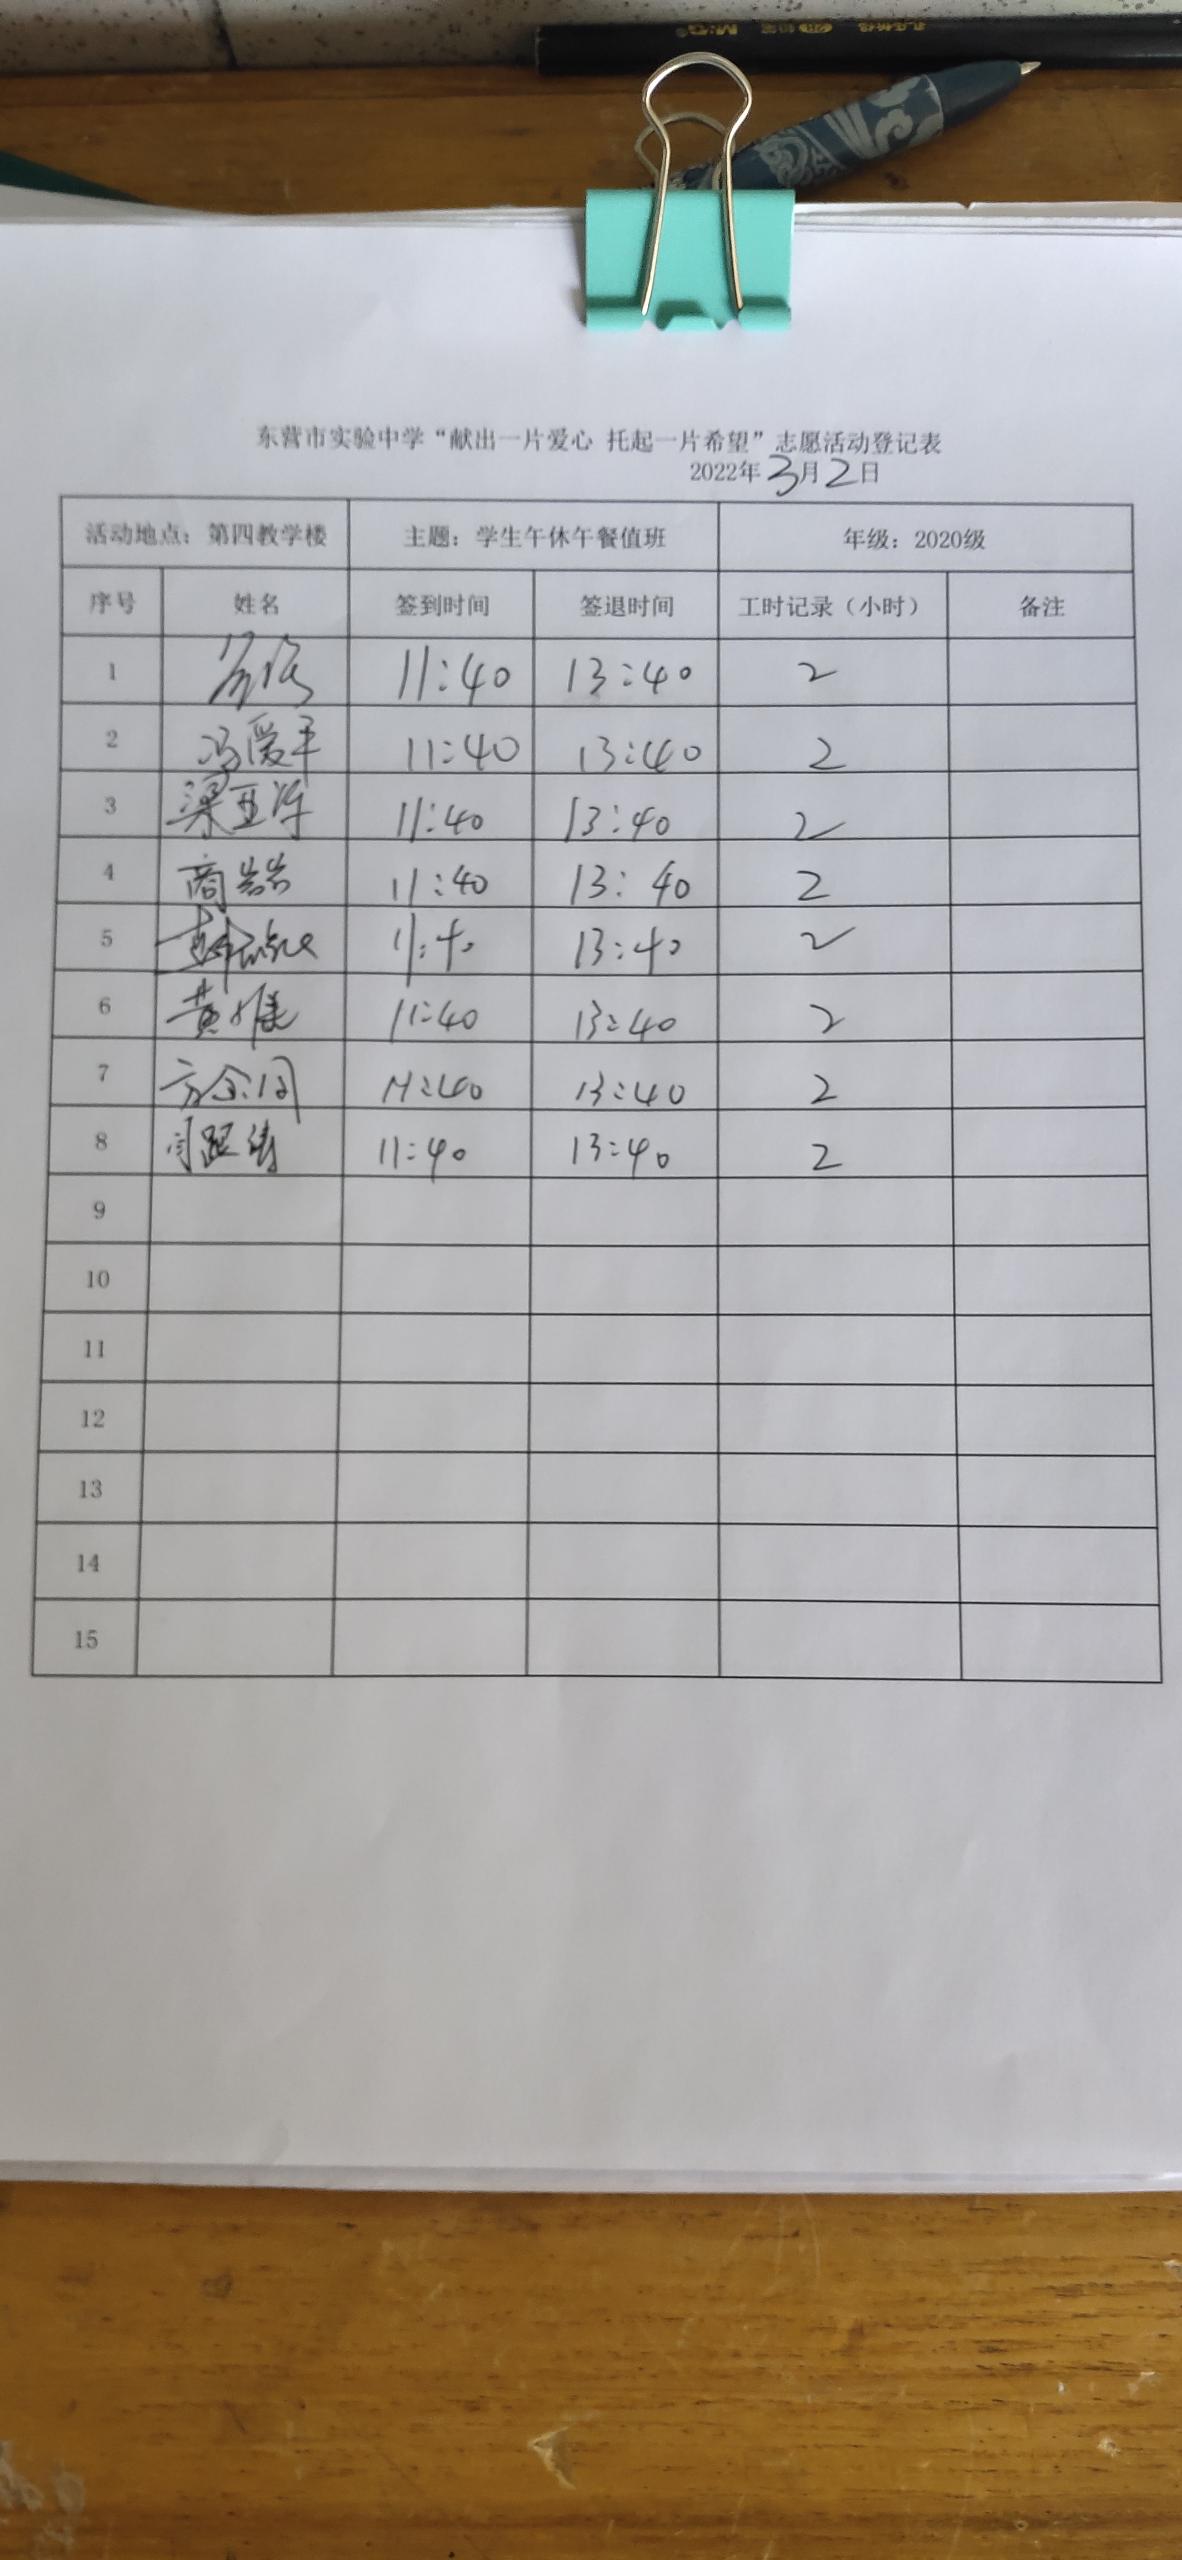 东营市实验中学“献出一片爱心 托起一片希望”志愿活动登记表
2022年3月2日
活动地点：第四教学楼 主题：学生午休午餐值班 年级：2020级
序号 姓名 签到时间 签退时间 工时记录（小时） 备注
1 11:40 13:40 2
2 冯爱平 11:40 13:40 2
3 梁亚萍 11:40 13:40 2
4 商岩岩 11:40 13:40 2
5 11:40 13:40 2
6 黄 11:40 13:40 2
7 方 11:40 13:40 2
8 11:40 13:40 2
9
10
11
12
13
14
15